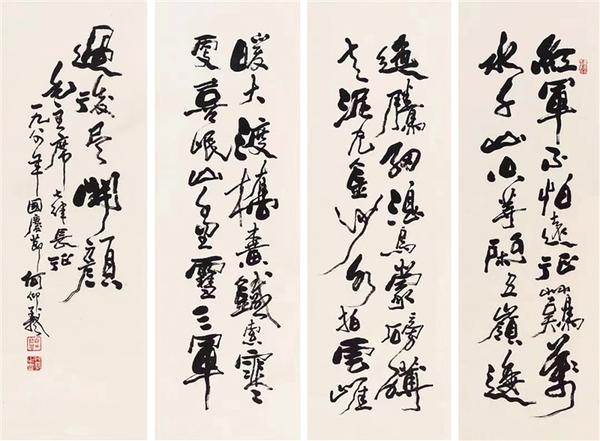 紅軍不怕遠征難萬
水千山只等閑五嶺逶
迤騰細浪烏蒙磅礴
走泥丸金沙水拍雲崖
暖大渡橋橫鐵索寒
更喜岷山千里雪三軍
過後尽開顏
毛主席七律長征
一九八年國慶節何仰羲